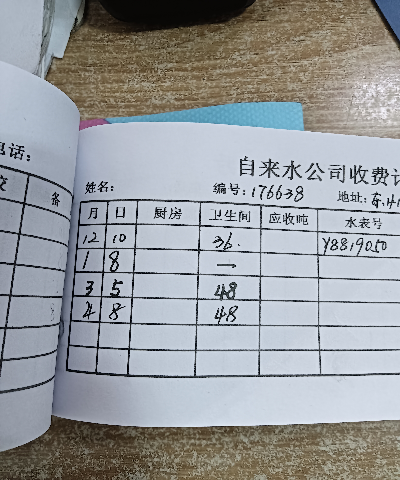 电话:
备
自来水公司收费
姓名: 编号: 176638 地址: 东
月 日 厨房 卫生间 应收吨 水表号
12 10 36. Y8819050
1 8 一
3 5 48
4 8 48